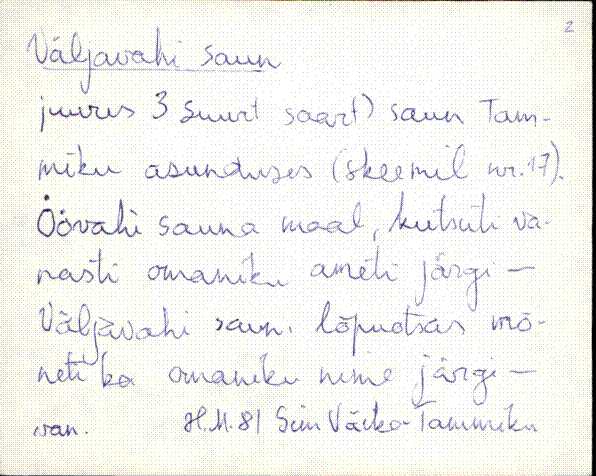 2
Väljavahi saun
juures 3 suurt saart) saun Tam-
miku asunduses (skeemil nr. 17).
Öövahi sauna maal, kutsuti va-
nasti omaniku ameti järgi —
Väljavahi saun. Lõpuotsas mõ-
neti ka omaniku nime järgi —
van. H.M. 81 Siim Väike-Tammiku